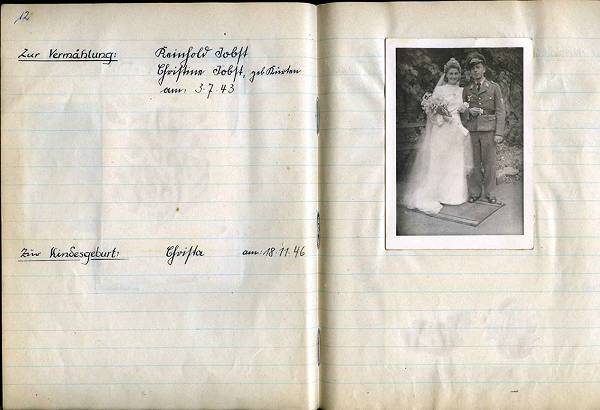 12
Zur Vermählung: Reinhold Jobst
Christine Jobst, geb. Kürten
am: 3.7.43
Zur Kindesgeburt: Christa am: 18.11.46